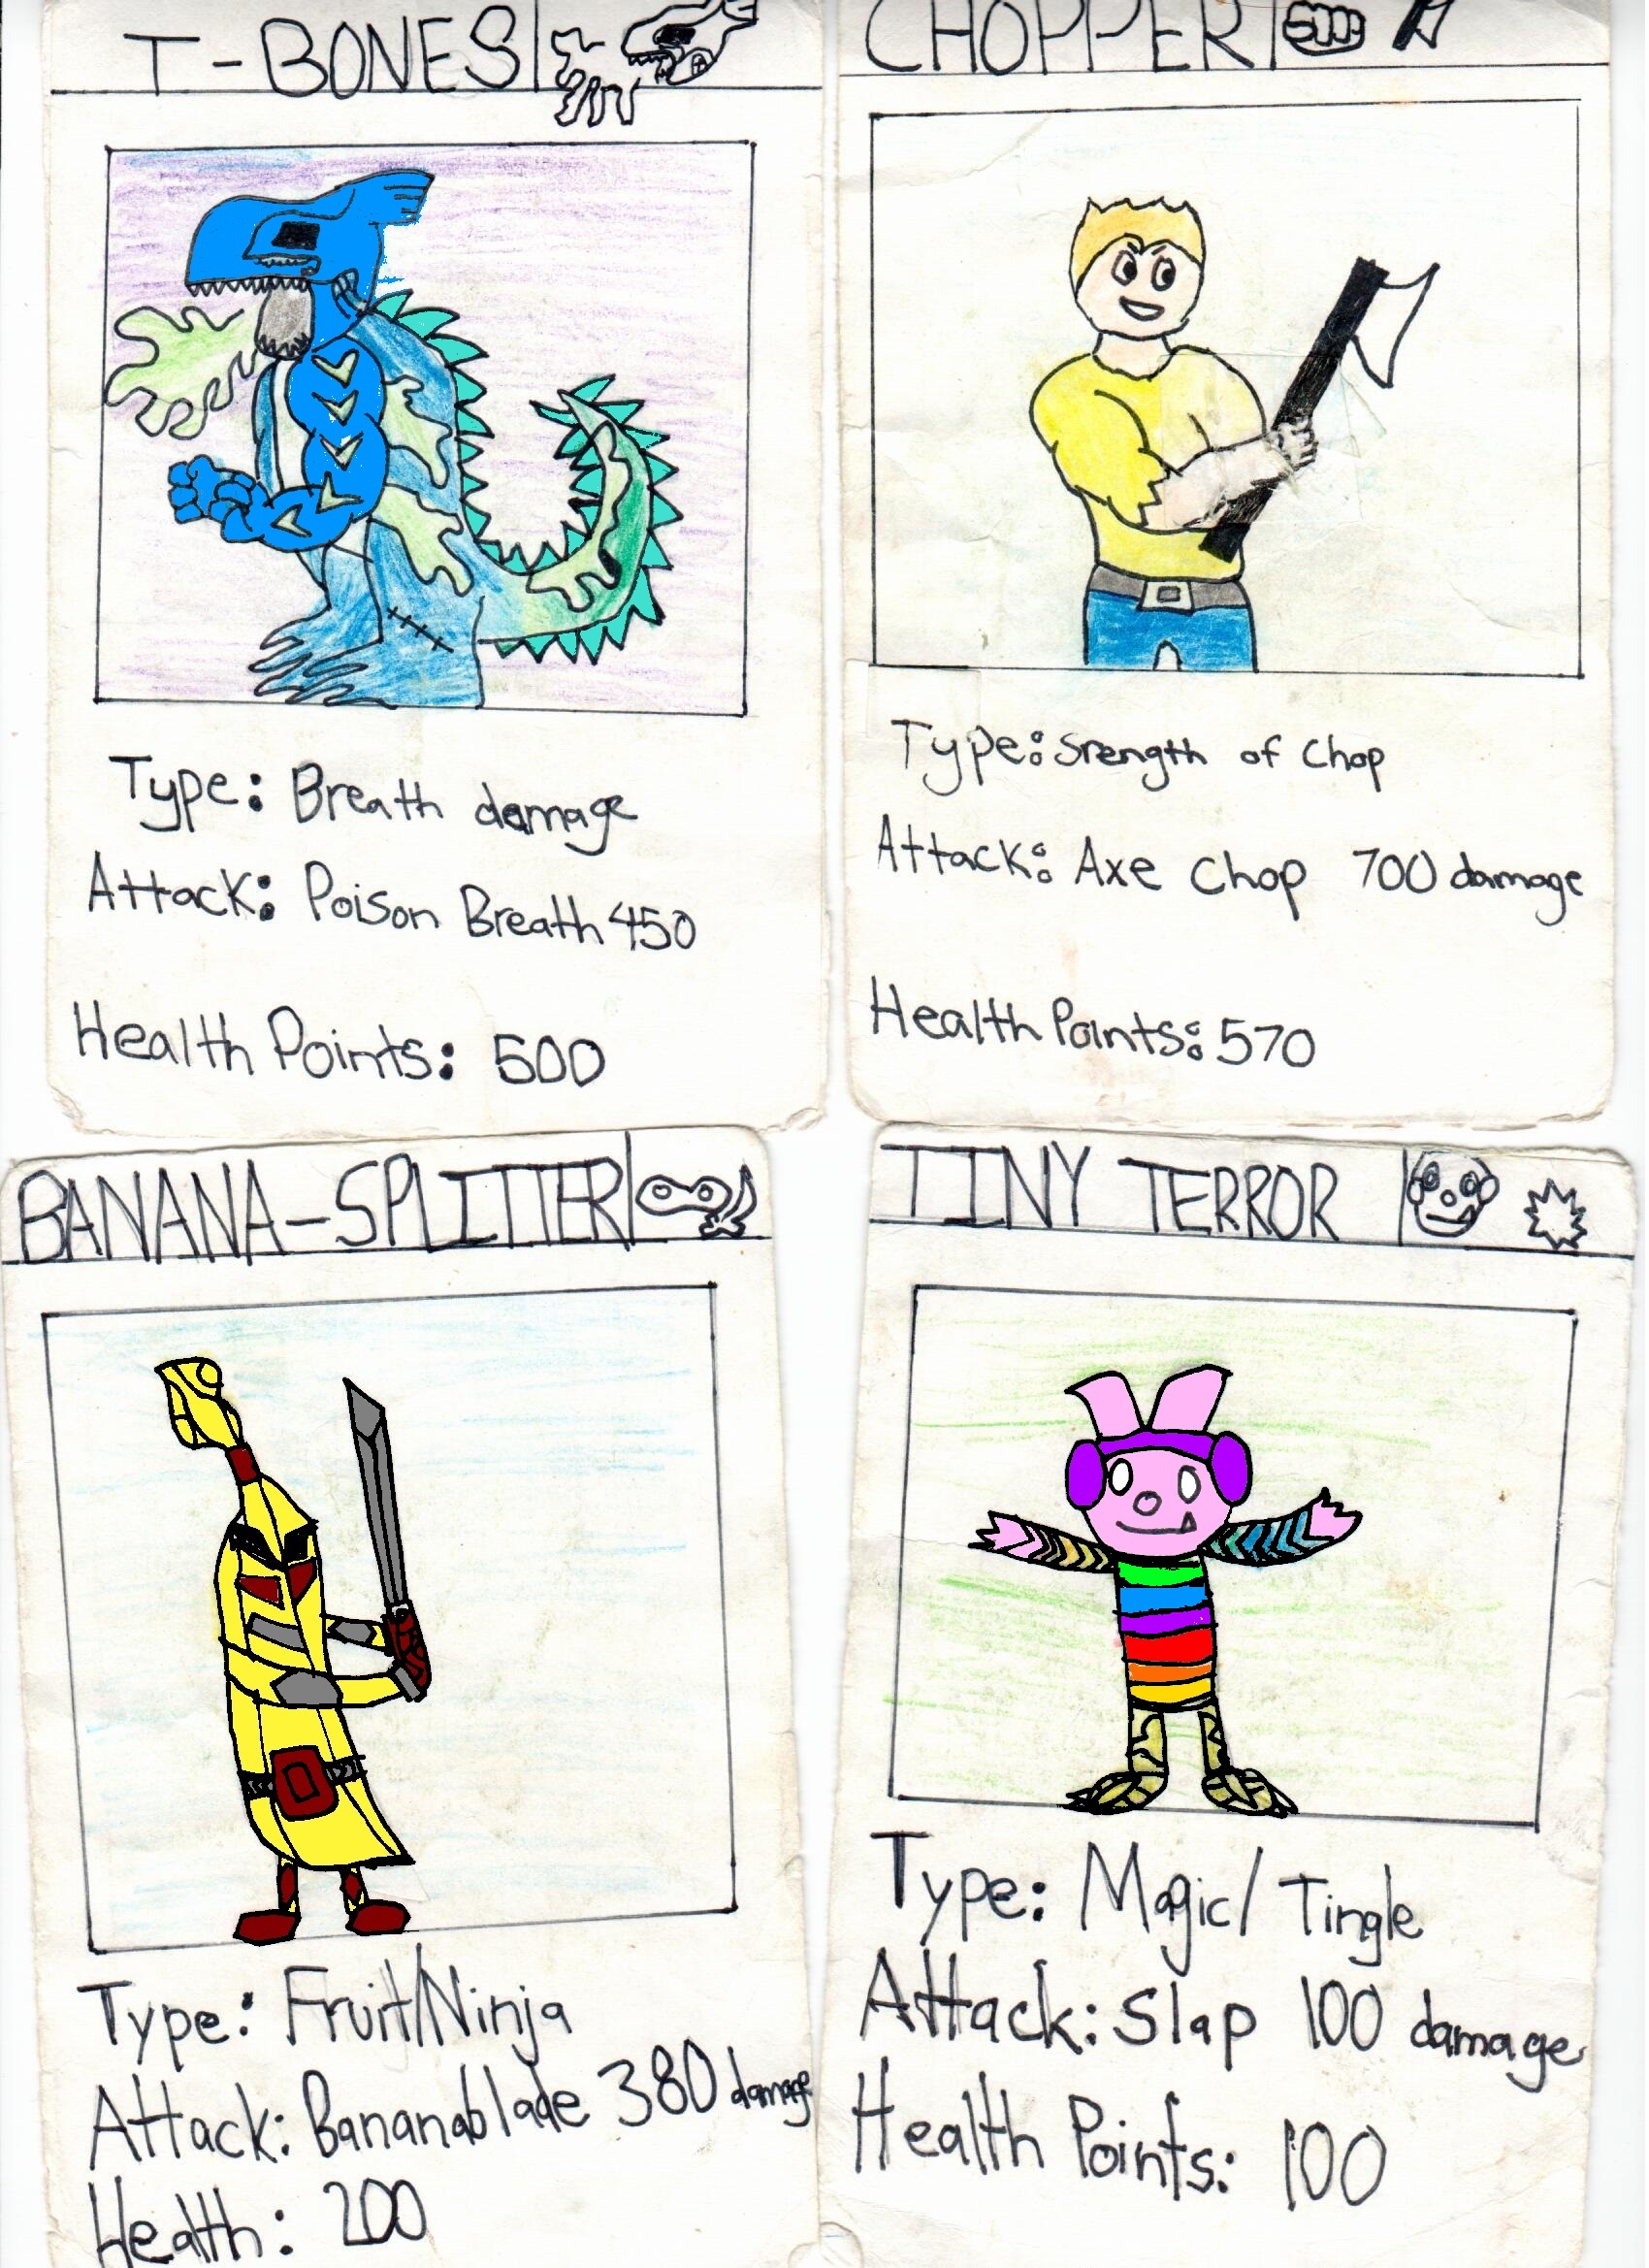 T-BONES
Type: Breath damage
Attack: Poison Breath 450
Health Points: 500
CHOPPER
Type: Srength of Chop
Attack: Axe Chop 700 damage
Health Points: 570
BANANA-SPLITTER
Type: Fruit/Ninja
Attack: Bananablade 380 damage
Health: 200
TINY TERROR
Type: Magic/Tingle
Attack: Slap 100 damage
Health Points: 100